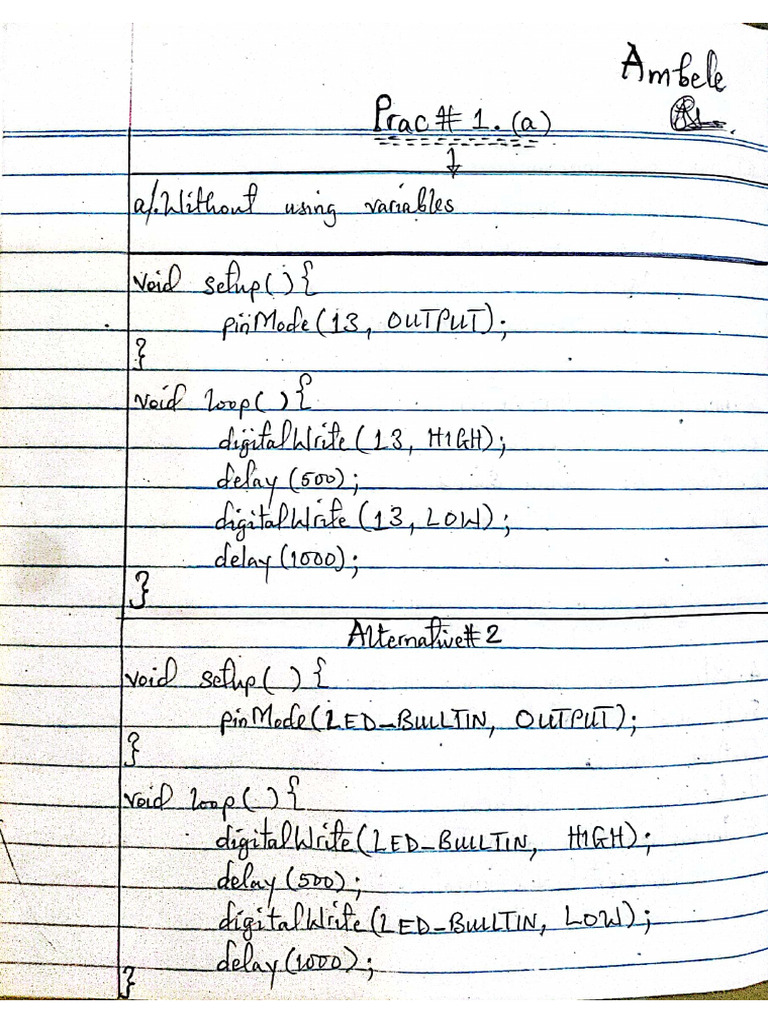 Ambele
Prac# 1. (a)
a/. Without using variables
void setup( ){
pinMode(13, OUTPUT);
}
void loop( ){
digitalWrite(13, HIGH);
delay(500);
digitalWrite(13, LOW);
delay(1000);
}
Alternative#2
void setup( ){
pinMode(LED_BUILTIN, OUTPUT);
}
void loop( ){
digitalWrite(LED_BUILTIN, HIGH);
delay(500);
digitalWrite(LED_BUILTIN, LOW);
delay(1000);
}